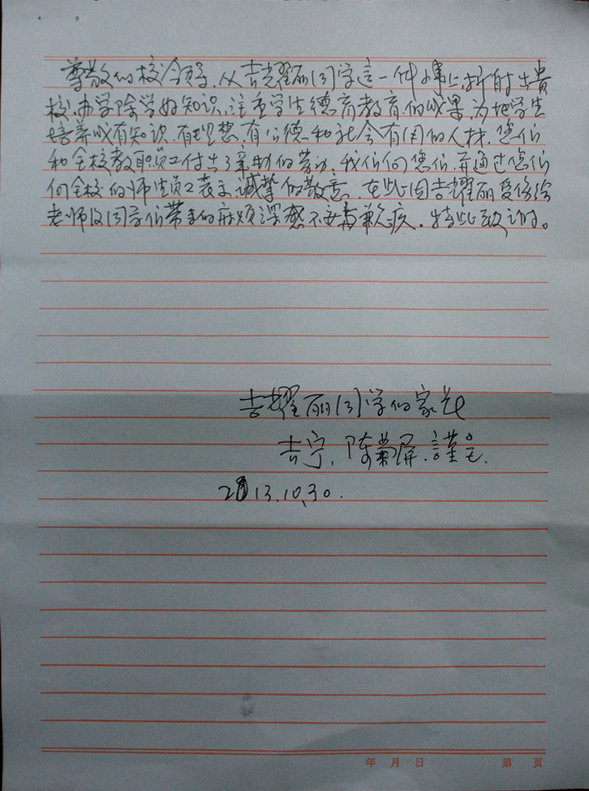 尊敬的校领导,从吉耀丽同学这一件事上折射出贵
校办学除学好知识,注重学生德育教育的成果,为把学生
培养成有知识、有理想、有公德和社会有用的人材,您们
和全校教职员工付出了辛勤的劳动,我们向您们,并通过您们
向全校的师生员工表示诚挚的敬意,在此因吉耀丽受伤给
老师及同学们带来的麻烦深感不安与歉疚。特此致谢。
吉耀丽同学的家长
吉宁、陈菊屏 謹呈
2013.10.30.
年 月 日 第 页